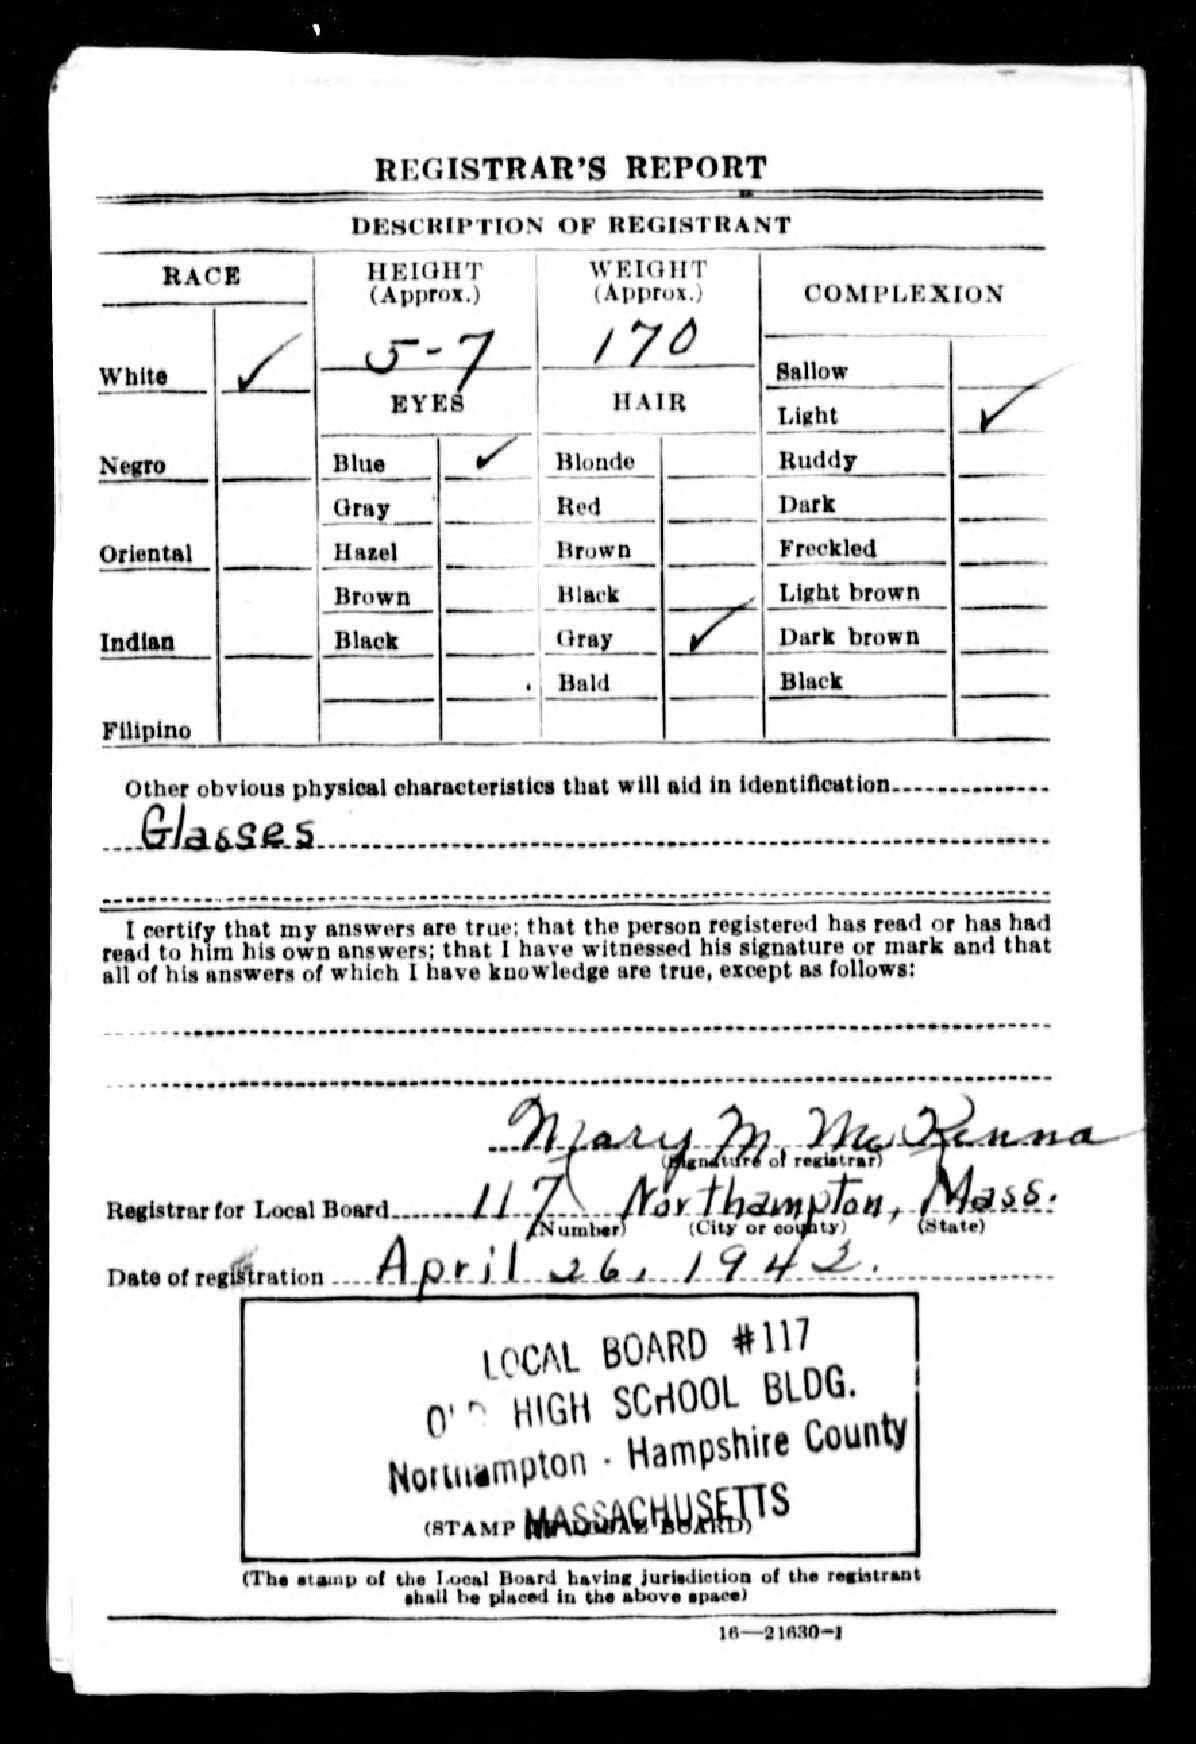 REGISTRAR'S REPORT
DESCRIPTION OF REGISTRANT
RACE
White ✓
Negro
Oriental
Indian
Filipino
HEIGHT
(Approx.)
5-7
EYES
Blue ✓
Gray
Hazel
Brown
Black
WEIGHT
(Approx.)
170
HAIR
Blonde
Red
Brown
Black
Gray ✓
Bald
COMPLEXION
Sallow
Light ✓
Ruddy
Dark
Freckled
Light brown
Dark brown
Black
Other obvious physical characteristics that will aid in identification
Glasses
I certify that my answers are true; that the person registered has read or has had
read to him his own answers; that I have witnessed his signature or mark and that
all of his answers of which I have knowledge are true, except as follows:
Mary M. McKenna
(Signature of registrar)
Registrar for Local Board 117 Northampton, Mass.
(Number) (City or county) (State)
Date of registration April 26, 1942.
LOCAL BOARD #117
HIGH SCHOOL BLDG.
Northampton - Hampshire County
MASSACHUSETTS
(STAMP BOARD)
(The stamp of the Local Board having jurisdiction of the registrant
shall be placed in the above space)
16—21630-1